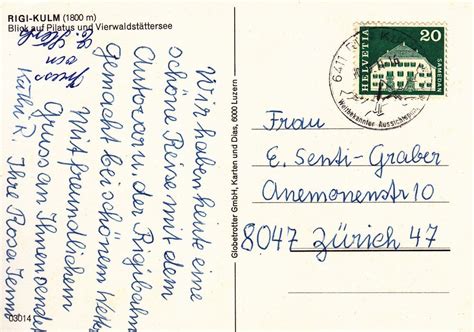 RIGI-KULM (1800 m)
Blick auf Pilatus und Vierwaldstättersee
Wir haben heute eine
schöne Reise mit dem
Autocar u. der Rigibahn
Gemacht bei schönem
Mit freundlichem
Gruss an Ihnen
Ihre Rosa
Globetrotter GmbH, Karten und Dias, 6000 Luzern
03014
HELVETIA
20
SAMEDAN
6411
Weltbekannter
Frau
E. Senti-Graber
Anemonenstr 10
8047 Zürich 47